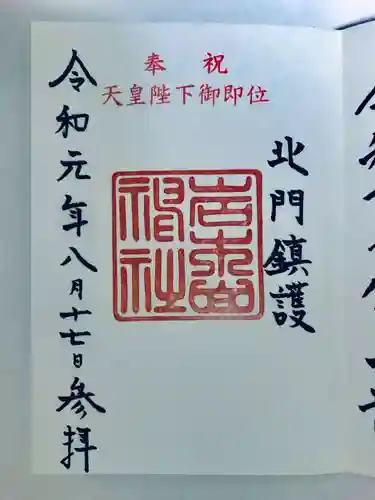 奉祝
天皇陛下御即位
北門鎮護
令和元年八月十七日参拝